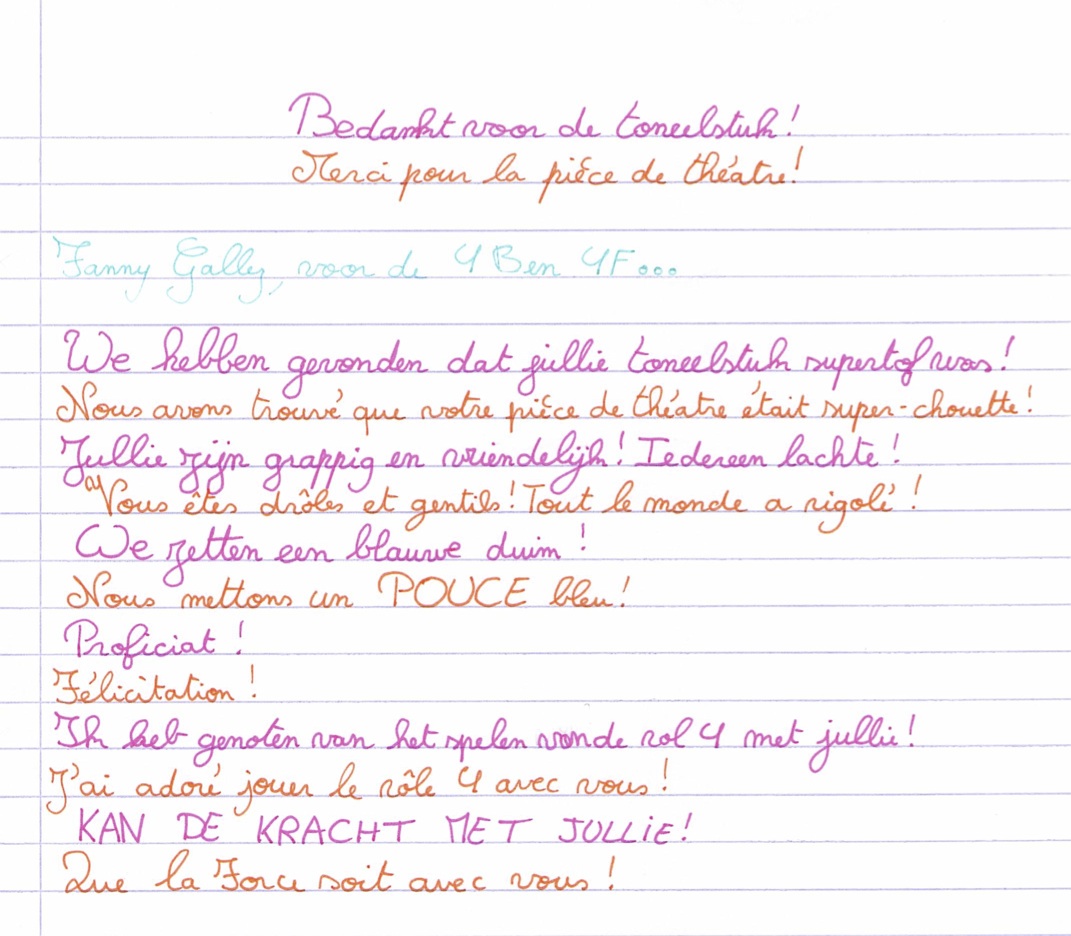 Bedankt voor de toneelstuk!
Merci pour la pièce de théatre!
Fanny Gally, voor de 4 B en 4F...
We hebben gevonden dat jullie toneelstuk supertof was!
Nous avons trouvé que votre pièce de théatre était super-chouette!
Jullie zijn grappig en vriendelijk! Iedereen lachte!
Vous êtes drôles et gentils! Tout le monde a rigolé!
We zetten een blauwe duim!
Nous mettons un POUCE bleu!
Proficiat!
Félicitation!
Ik heb genoten van het spelen van de rol 4 met jullie!
J'ai adoré jouer le rôle 4 avec vous!
KAN DE KRACHT MET JULLIE!
Que la Force soit avec vous!